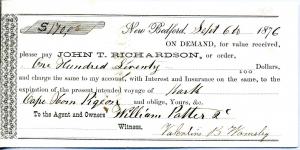 $170.00 New Bedford, Sept 6th 1876
ON DEMAND, for value received,
please pay JOHN T. RICHARDSON, or order,
One Hundred Seventy
100 Dollars,
and charge the same to my account, with Interest and Insurance on the same, to the
expiration of the present intended voyage of Bark
Cape Horn Pigeon and oblige, Yours, &c.
To the Agent and Owners William Potter 2d
Witness, Valentine B